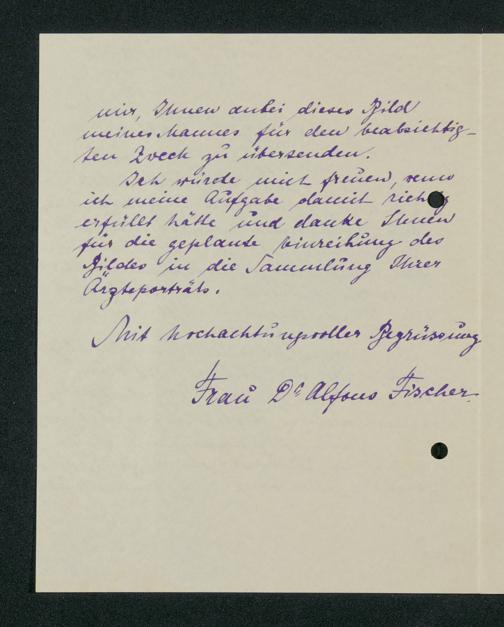 mir, Ihnen anbei dieses Bild
meines Mannes für den beabsichtig-
ten Zweck zu übersenden.
Ich würde mich freuen, wenn
ich meine Aufgabe damit richtig
erfüllt hätte und danke Ihnen
für die geplante Einreihung des
Bildes in die Sammlung Ihrer
Ärzteporträts.
Mit hochachtungsvoller Begrüssung
Frau Dr Alfons Fischer.